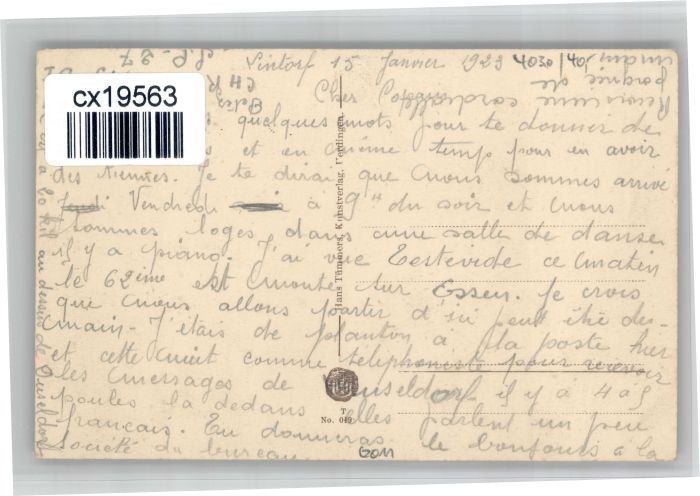 cx19563
Lintorf 15 Janvier 1923
4030/40
Cher
quelques mots pour te donner de
et en même temps pour en avoir
des tiennes. Je te dirai que nous sommes arrivé
Jeudi Vendredi à 9 H du soir et nous
sommes logés dans une salle de danse
il y a piano. J'ai vue Testevide ce matin
le 62ème est monté sur Essen. Je crois
que nous allons partir d'ici peut être de-
main. J'étais de planton à la poste hier
et cette nuit comme téléphoniste pour recevoir
les messages de Dusseldorf il y a 4 a 5
poules la dedans elles parlent un peu
français. Tu donneras le bonjour à la
société du bureau
au dessus de Dusseldorf
Hans Tümmers, Kunstverlag, Uerdingen.
T
No. 049